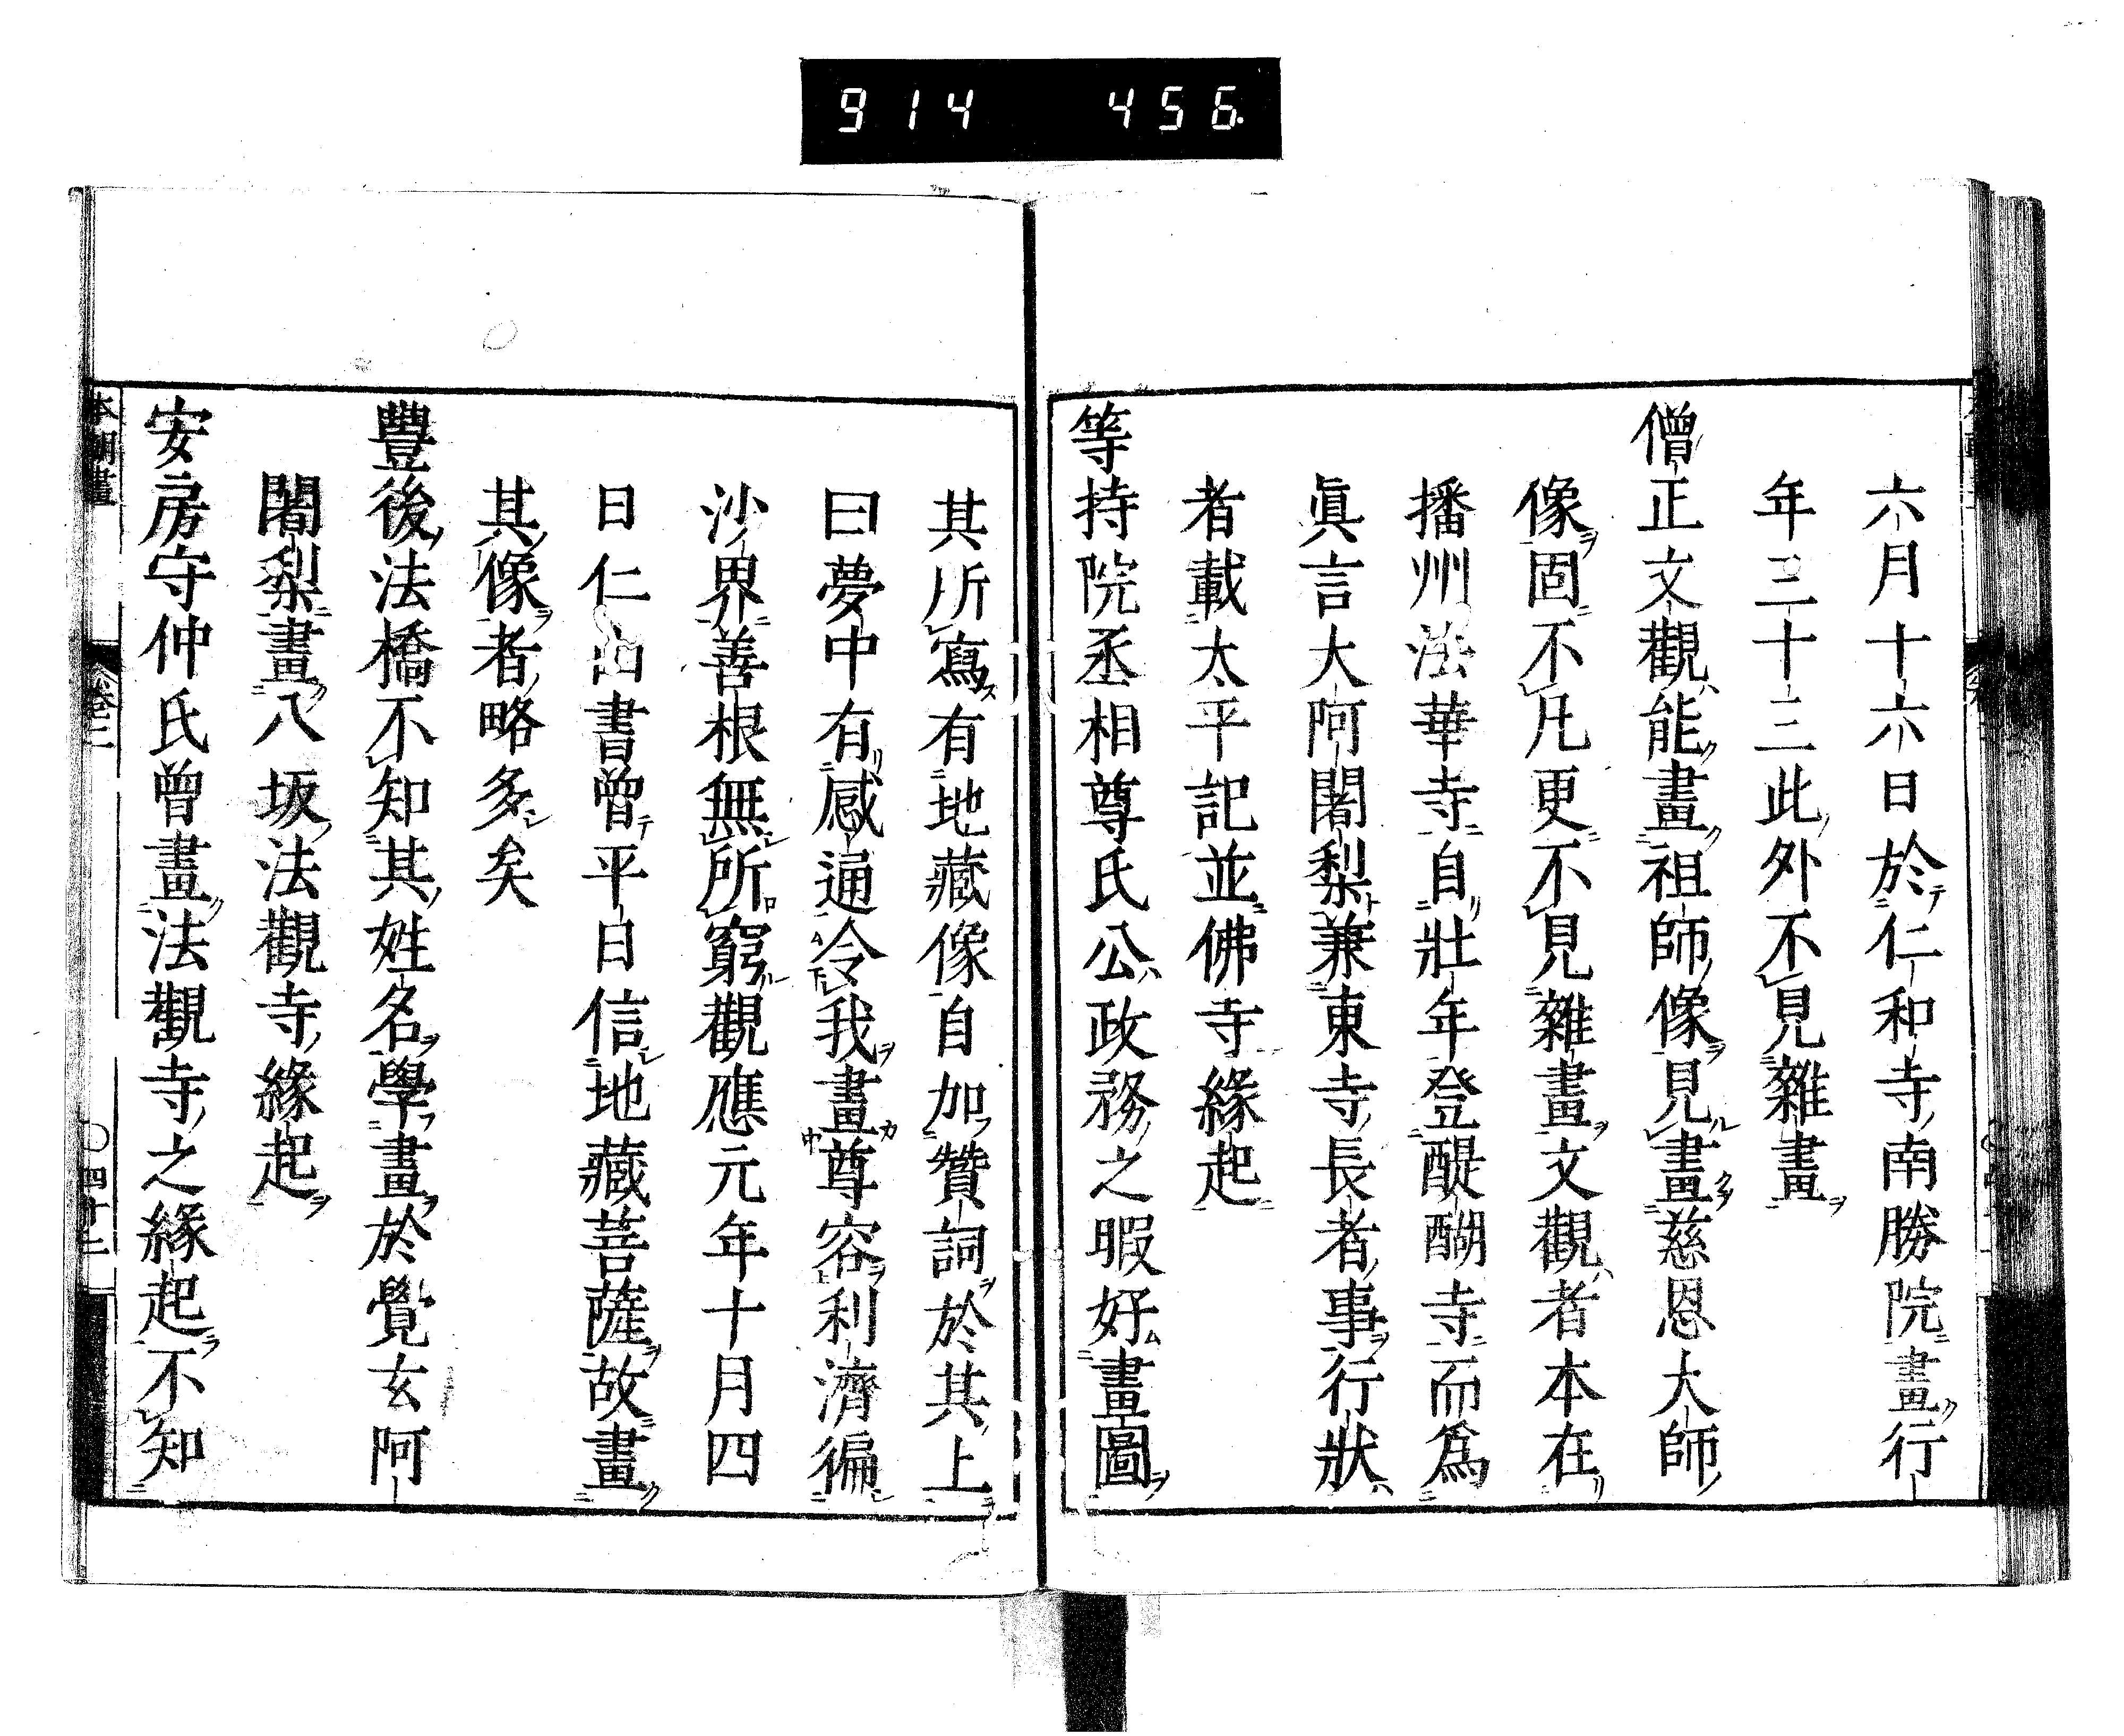 914 456
六月十六日於仁和寺南勝院畫行
年三十三此外不見雜畫
僧正文觀能畫祖師像見畫慈恩大師
像固不凡更不見雜畫文觀者本在
播州法華寺自壯年登醍醐寺而爲
眞言大阿闍梨兼東寺長者事行狀
者載太平記並佛寺緣起
等持院丞相尊氏公政務之暇好畫圖
其所寫有地藏像自加贊詞於其上
曰夢中有感通令我畫尊容利濟徧
沙界善根無所窮觀應元年十月四
日仁山書曾平日信地藏菩薩故畫
其像者略多矣
豐後法橋不知其姓名學畫於覺玄阿
闍梨畫八坂法觀寺緣起
安房守仲氏曾畫法觀寺之緣起不知
本朝畫 卷二 〇四十二